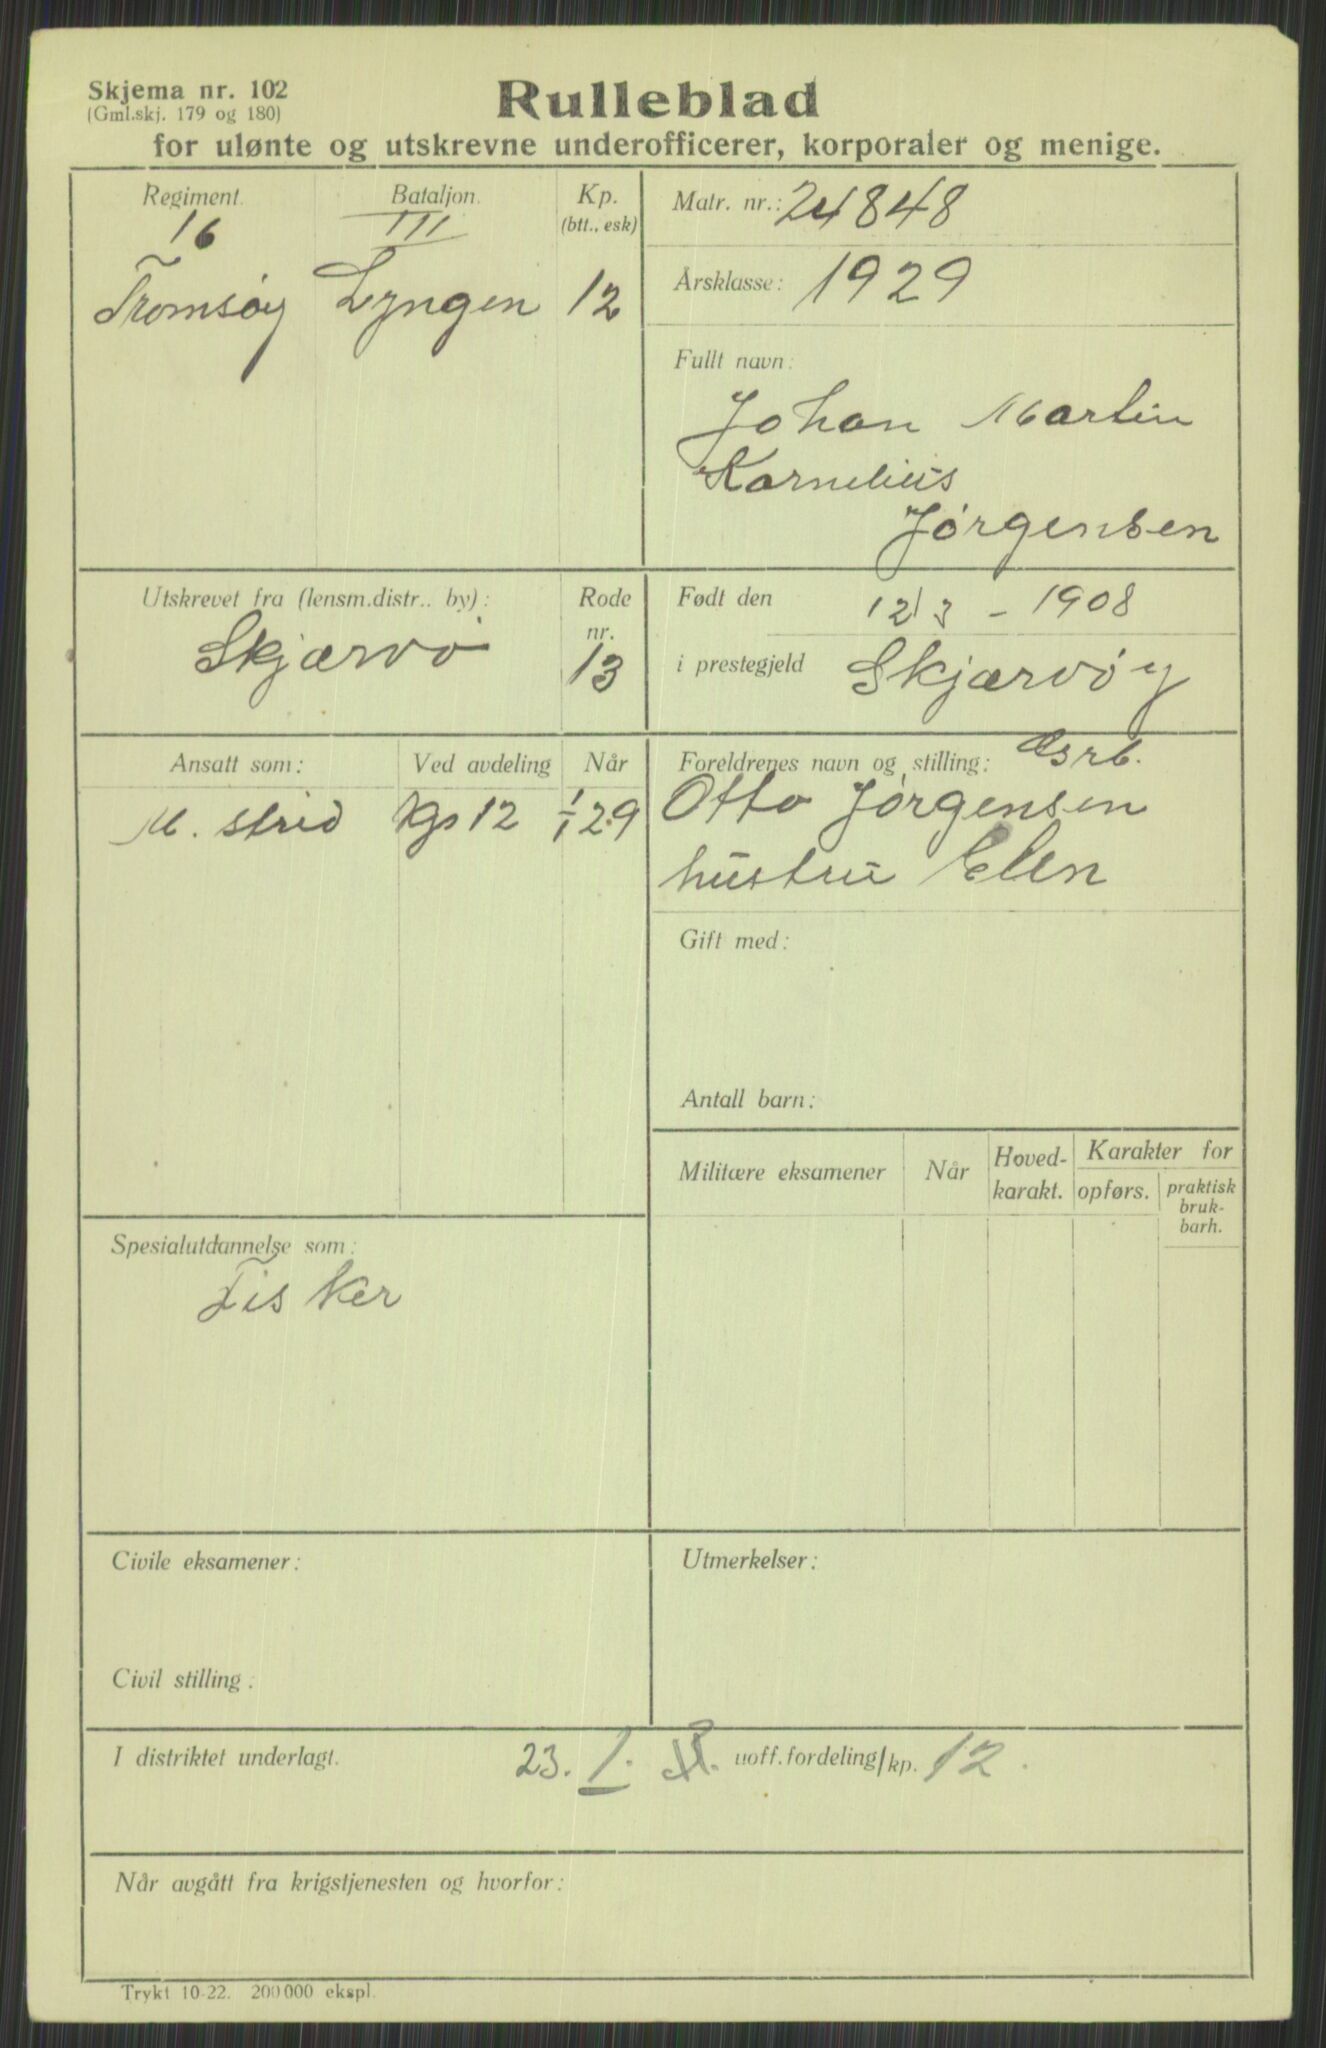 Skjema nr. 102
(Gml.skj. 179 og 180)
Rulleblad
for ulønte og utskrevne underofficerer, korporaler og menige.
Regiment.
16
Tromsøy
Bataljon.
III
Lyngen
Kp.
(btt., esk)
12
Matr. nr.: 24848
Årsklasse: 1929
Fullt navn:
Johan Martin
Kornelius
Jørgensen
Utskrevet fra (lensm.distr.. by):
Skjærvø
Rode
nr.
13
Født den 12/3 - 1908
i prestegjeld Skjærvøy
Ansatt som:
M. strid
Ved avdeling
Kp 12
Når
1/1 29
Foreldrenes navn og stilling:
Otto Jørgensen
hustru Elen
Gift med:
Antall barn:
Militære eksamener
Når
Hoved-
karakt.
Karakter for
opførs.
praktisk
bruk-
barh.
Spesialutdannelse som:
Fisker
Civile eksamener:
Civil stilling:
Utmerkelser:
I distriktet underlagt. 23. I. uoff.fordeling/kp. 12.
Når avgått fra krigstjenesten og hvorfor:
Trykt 10-22. 200 000 ekspl.